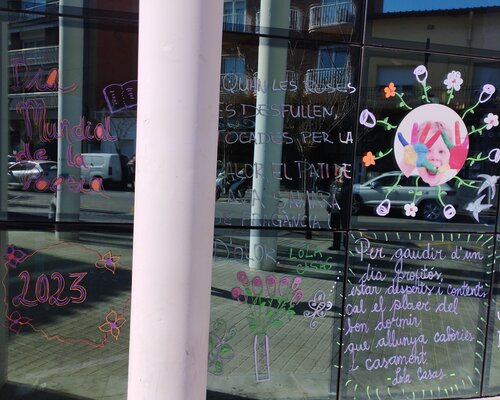 Dia
Mundial
de la
Poesia
2023
QUAN LES
ES DESFULLEN,
TOCADES PER LA
CALOR, EL PATI DE
CASA S'INUNDA
DE FRAGÀNCIA I
D'AMOR
LOLA
Per gaudir d'un
dia profitós,
estar desperts i content,
cal el plaer del
bon dormir
que allunya cabòries
i casament.
- Lola Casas -